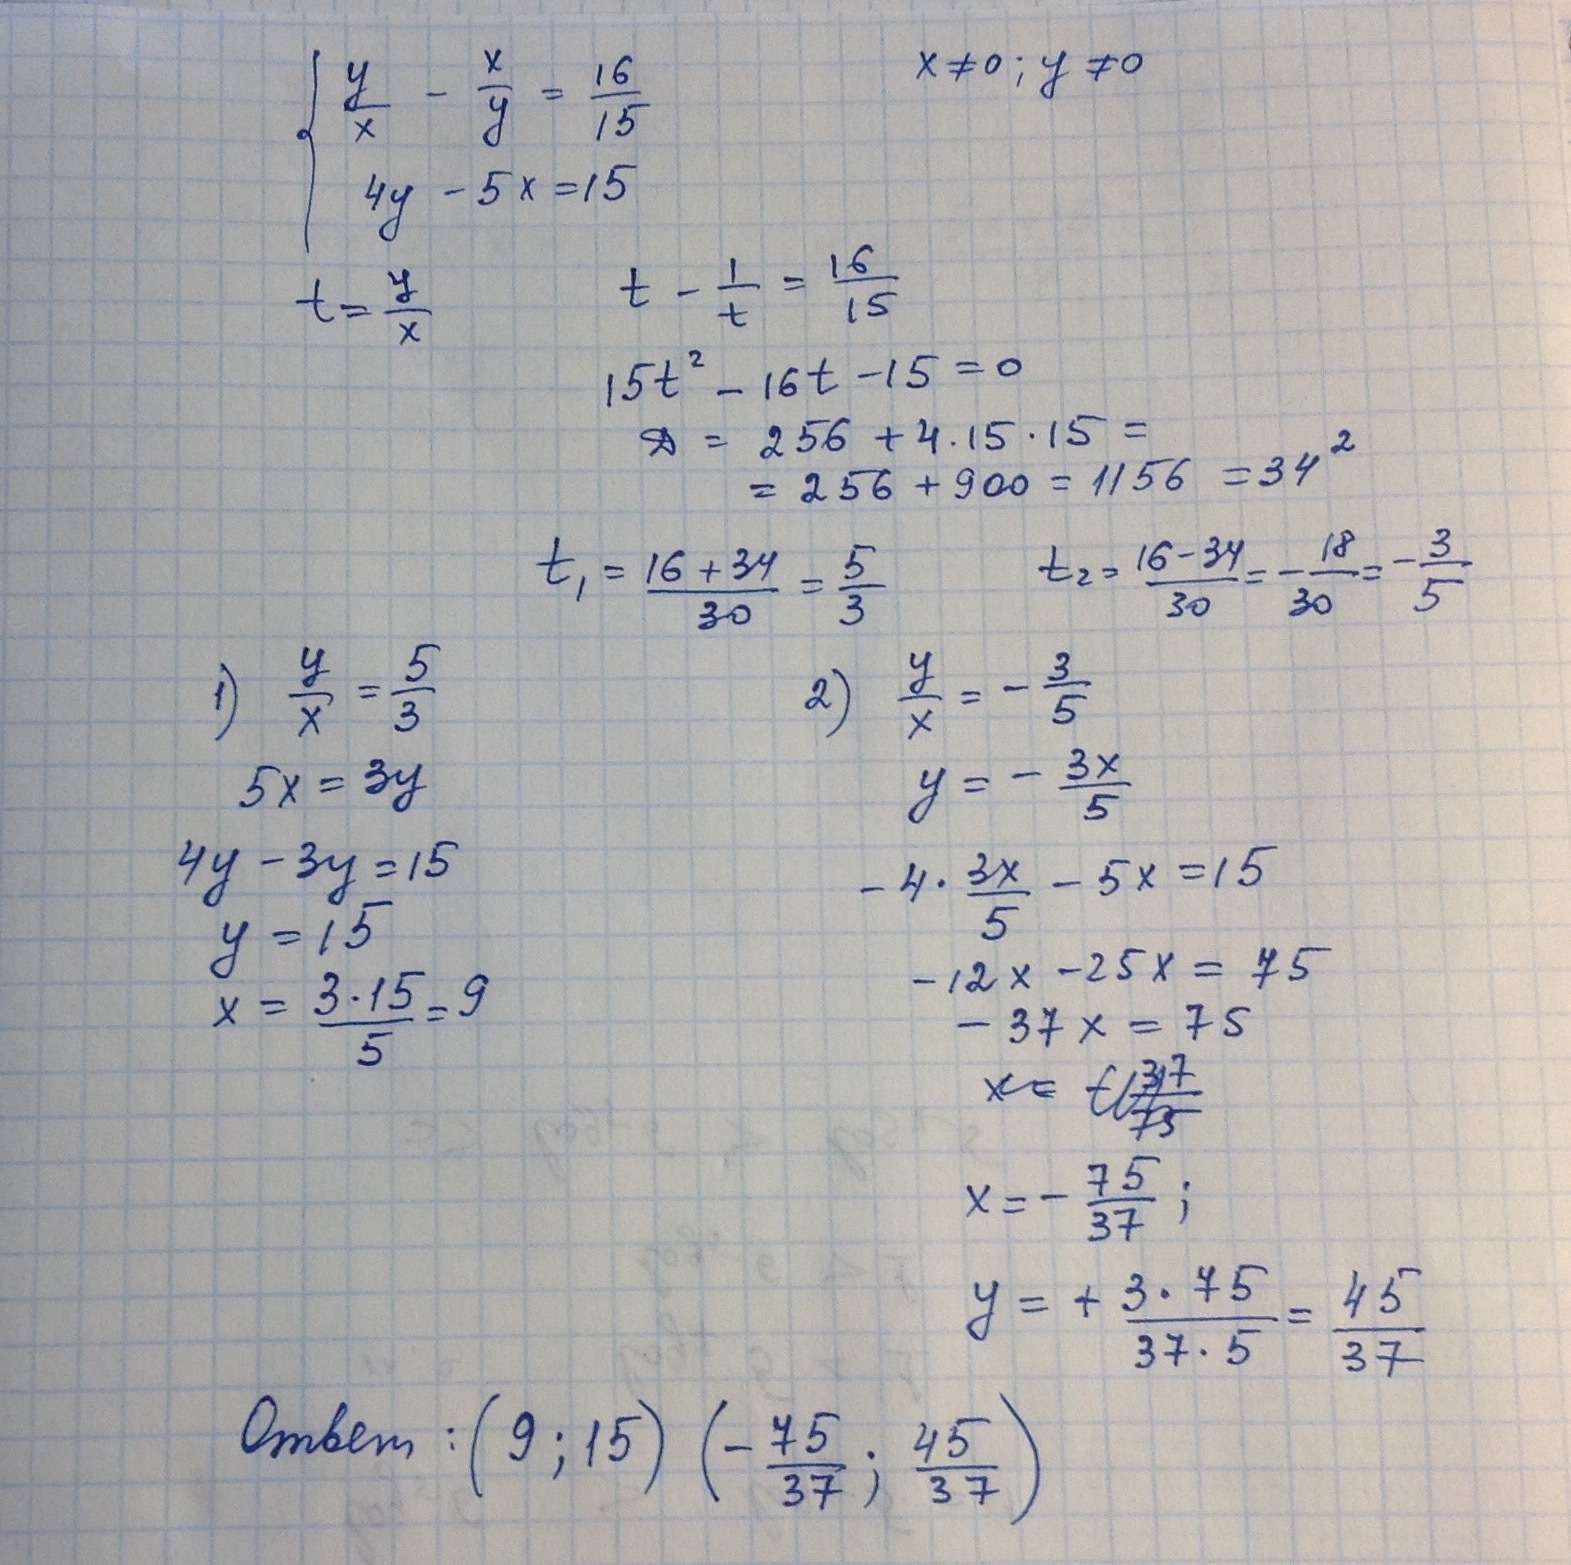 y/x - x/y = 16/15    x ≠ 0; y ≠ 0
4y - 5x = 15
t = y/x    t - 1/t = 16/15
15t² - 16t - 15 = 0
D = 256 + 4·15·15 =
= 256 + 900 = 1156 = 34²
t₁ = (16+34)/30 = 5/3    t₂ = (16-34)/30 = -18/30 = -3/5
1) y/x = 5/3
5x = 3y
4y - 3y = 15
y = 15
x = 3·15/5 = 9
2) y/x = -3/5
y = -3x/5
-4·3x/5 - 5x = 15
-12x - 25x = 75
-37x = 75
x = 37/75
x = -75/37;
y = + 3·75/37·5 = 45/37
Ответ: (9; 15) (-75/37; 45/37)